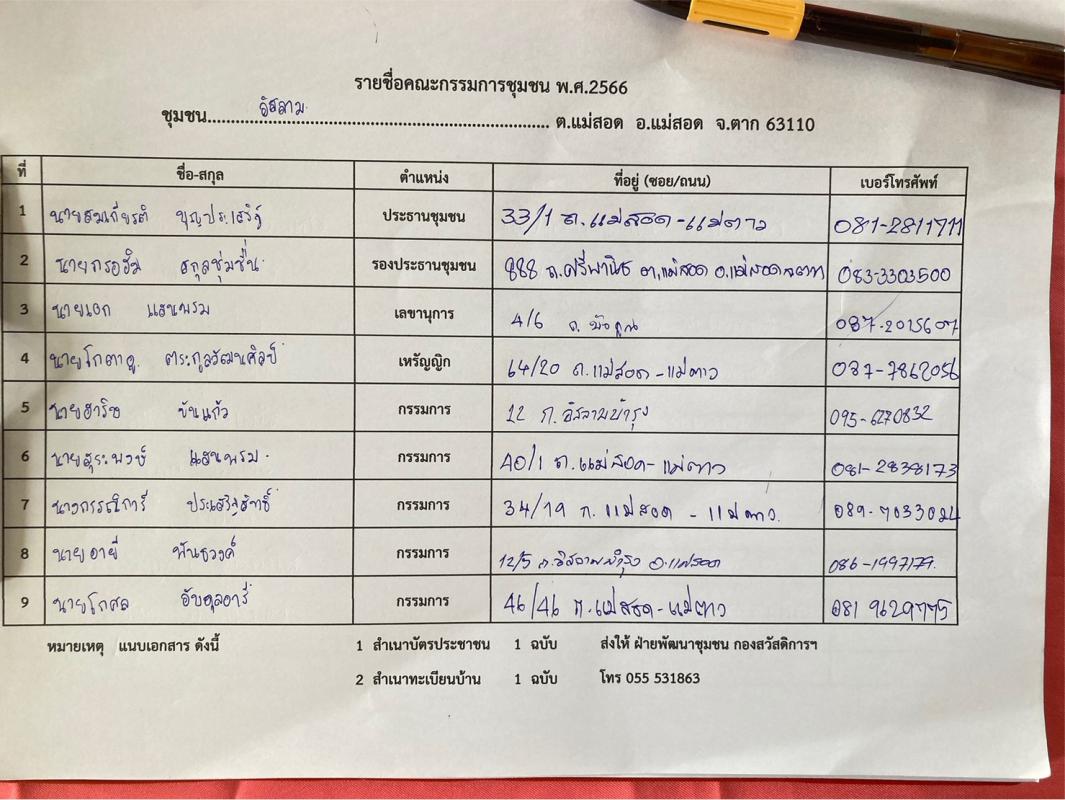 รายชื่อคณะกรรมการชุมชน พ.ศ.2566
ชุมชน อิสลาม ต.แม่สอด อ.แม่สอด จ.ตาก 63110
ที่ ชื่อ-สกุล ตำแหน่ง ที่อยู่ (ซอย/ถนน) เบอร์โทรศัพท์
1 นายสมเกียรติ บุญประเสริฐ ประธานชุมชน 33/1 ถ.แม่สอด-แม่ตาว
2 นายกรอฮีม สกุลชุ่มชื่น รองประธานชุมชน 888 ถ.ศรีพานิช ต.แม่สอด อ.แม่สอด จ.ตาก 083-3303500
3 นายเอก แสนพรม เลขานุการ 4/6 ถ. 087-2015607
4 นายโกตาดู ตระกูลวัฒนศิลป์ เหรัญญิก 64/20 ถ.แม่สอด-แม่ตาว 087-7862056
5 นายฮาริช ขันแก้ว กรรมการ 12 ถ.อิสลามบำรุง 095-6270832
6 นายสุระพงษ์ แสนพรม กรรมการ 40/1 ถ.แม่สอด-แม่ตาว 081-2838173
7 นางกรรณิการ์ ประเสริฐสิทธิ์ กรรมการ 34/19 ถ.แม่สอด-แม่ตาว 089-7033024
8 นายอายี พันธวงค์ กรรมการ 12/5 ถ.อิสลามบำรุง อ.แม่สอด 086-1997179
9 นายโกศล อับดุลอารี กรรมการ 46/46 ถ.แม่สอด-แม่ตาว 081 9629775
หมายเหตุ แนบเอกสาร ดังนี้ 1 สำเนาบัตรประชาชน 1 ฉบับ ส่งให้ ฝ่ายพัฒนาชุมชน กองสวัสดิการฯ
2 สำเนาทะเบียนบ้าน 1 ฉบับ โทร 055 531863